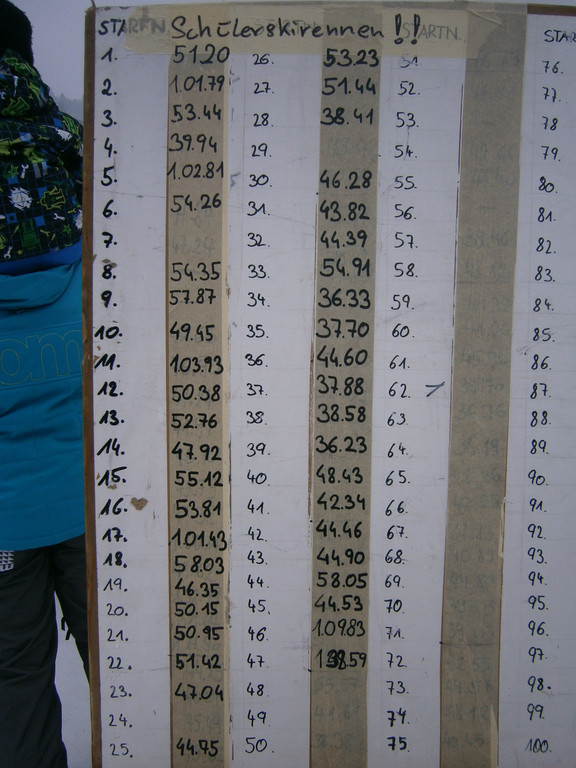 Schülerskirennen !!
STARTN. STARTN. STAR
1. 51.20 26. 53.23 51. 76.
2. 1.01.79 27. 51.44 52. 77.
3. 53.44 28. 38.41 53. 78
4. 39.94 29. 54. 79.
5. 1.02.81 30. 46.28 55. 80.
6. 54.26 31. 43.82 56. 81.
7. 32. 44.39 57. 82.
8. 54.35 33. 54.91 58. 83.
9. 57.87 34. 36.33 59. 84.
10. 49.45 35. 37.70 60. 85.
11. 1.03.93 36. 44.60 61. 86.
12. 50.38 37. 37.88 62. 87.
13. 52.76 38. 38.58 63. 88.
14. 47.92 39. 36.23 64. 89.
15. 55.12 40. 48.43 65. 90.
16. 53.81 41. 42.34 66. 91.
17. 1.01.43 42. 44.46 67. 92.
18. 58.03 43. 44.90 68. 93.
19. 46.35 44. 58.05 69. 94.
20. 50.15 45. 44.53 70. 95.
21. 50.95 46. 1.09.83 71. 96.
22. 51.42 47 72. 97.
23. 47.04 48 73. 98.
24. 49. 74. 99.
25. 44.75 50. 75. 100.